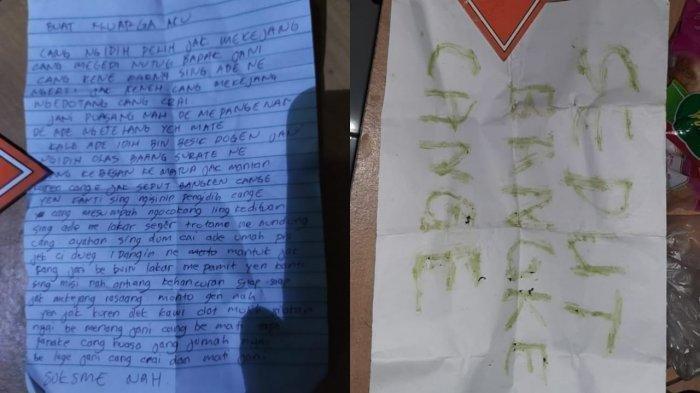 BUAT KLUARGA AKU
CANG NGIDIH PELIH JAK MEKEJANG
CANG MEGEDI NUTUG BAPAK JANI
CANG KENE SING ADE NE
NGERTI JAK KENEH CANG MEKEJANG
NGEDOTANG CANG CRAI
JANI PUASANG NAH DE MEPANGENAN
DE ADE NGETELANG YEH MATE
KALO ADE IDIH BIN BESIK DOGEN JANI
NGIDIH OLAS BAANG SURATE NE
CANG KEBESAN KE MATUA JAK MANTAN
KUREN CANGE JAK SEPUT BANGKEN CANGE
YEN BAKTI sing ngisinin pengidih cange
cang mesumpah ngocokang ling kedituan
sing ade ne lakar seger ne nundung
cang ayahan sing dum cai ade umah
jeb ci duweg I Dangin ne mantuk jak
pang jani be buin lakar mepamit yen banti
sing misi nah antiang kehancuran siap-siap
jak mekejang rasaang monto gen nah
yen jak kuren dek kawi
ngai be menang jani cang be mati
panake cang kuase jang jumah
be lege jani cang crai dan mati jani
SUKSME NAH.
SEPUT
BANGKE
CANGE